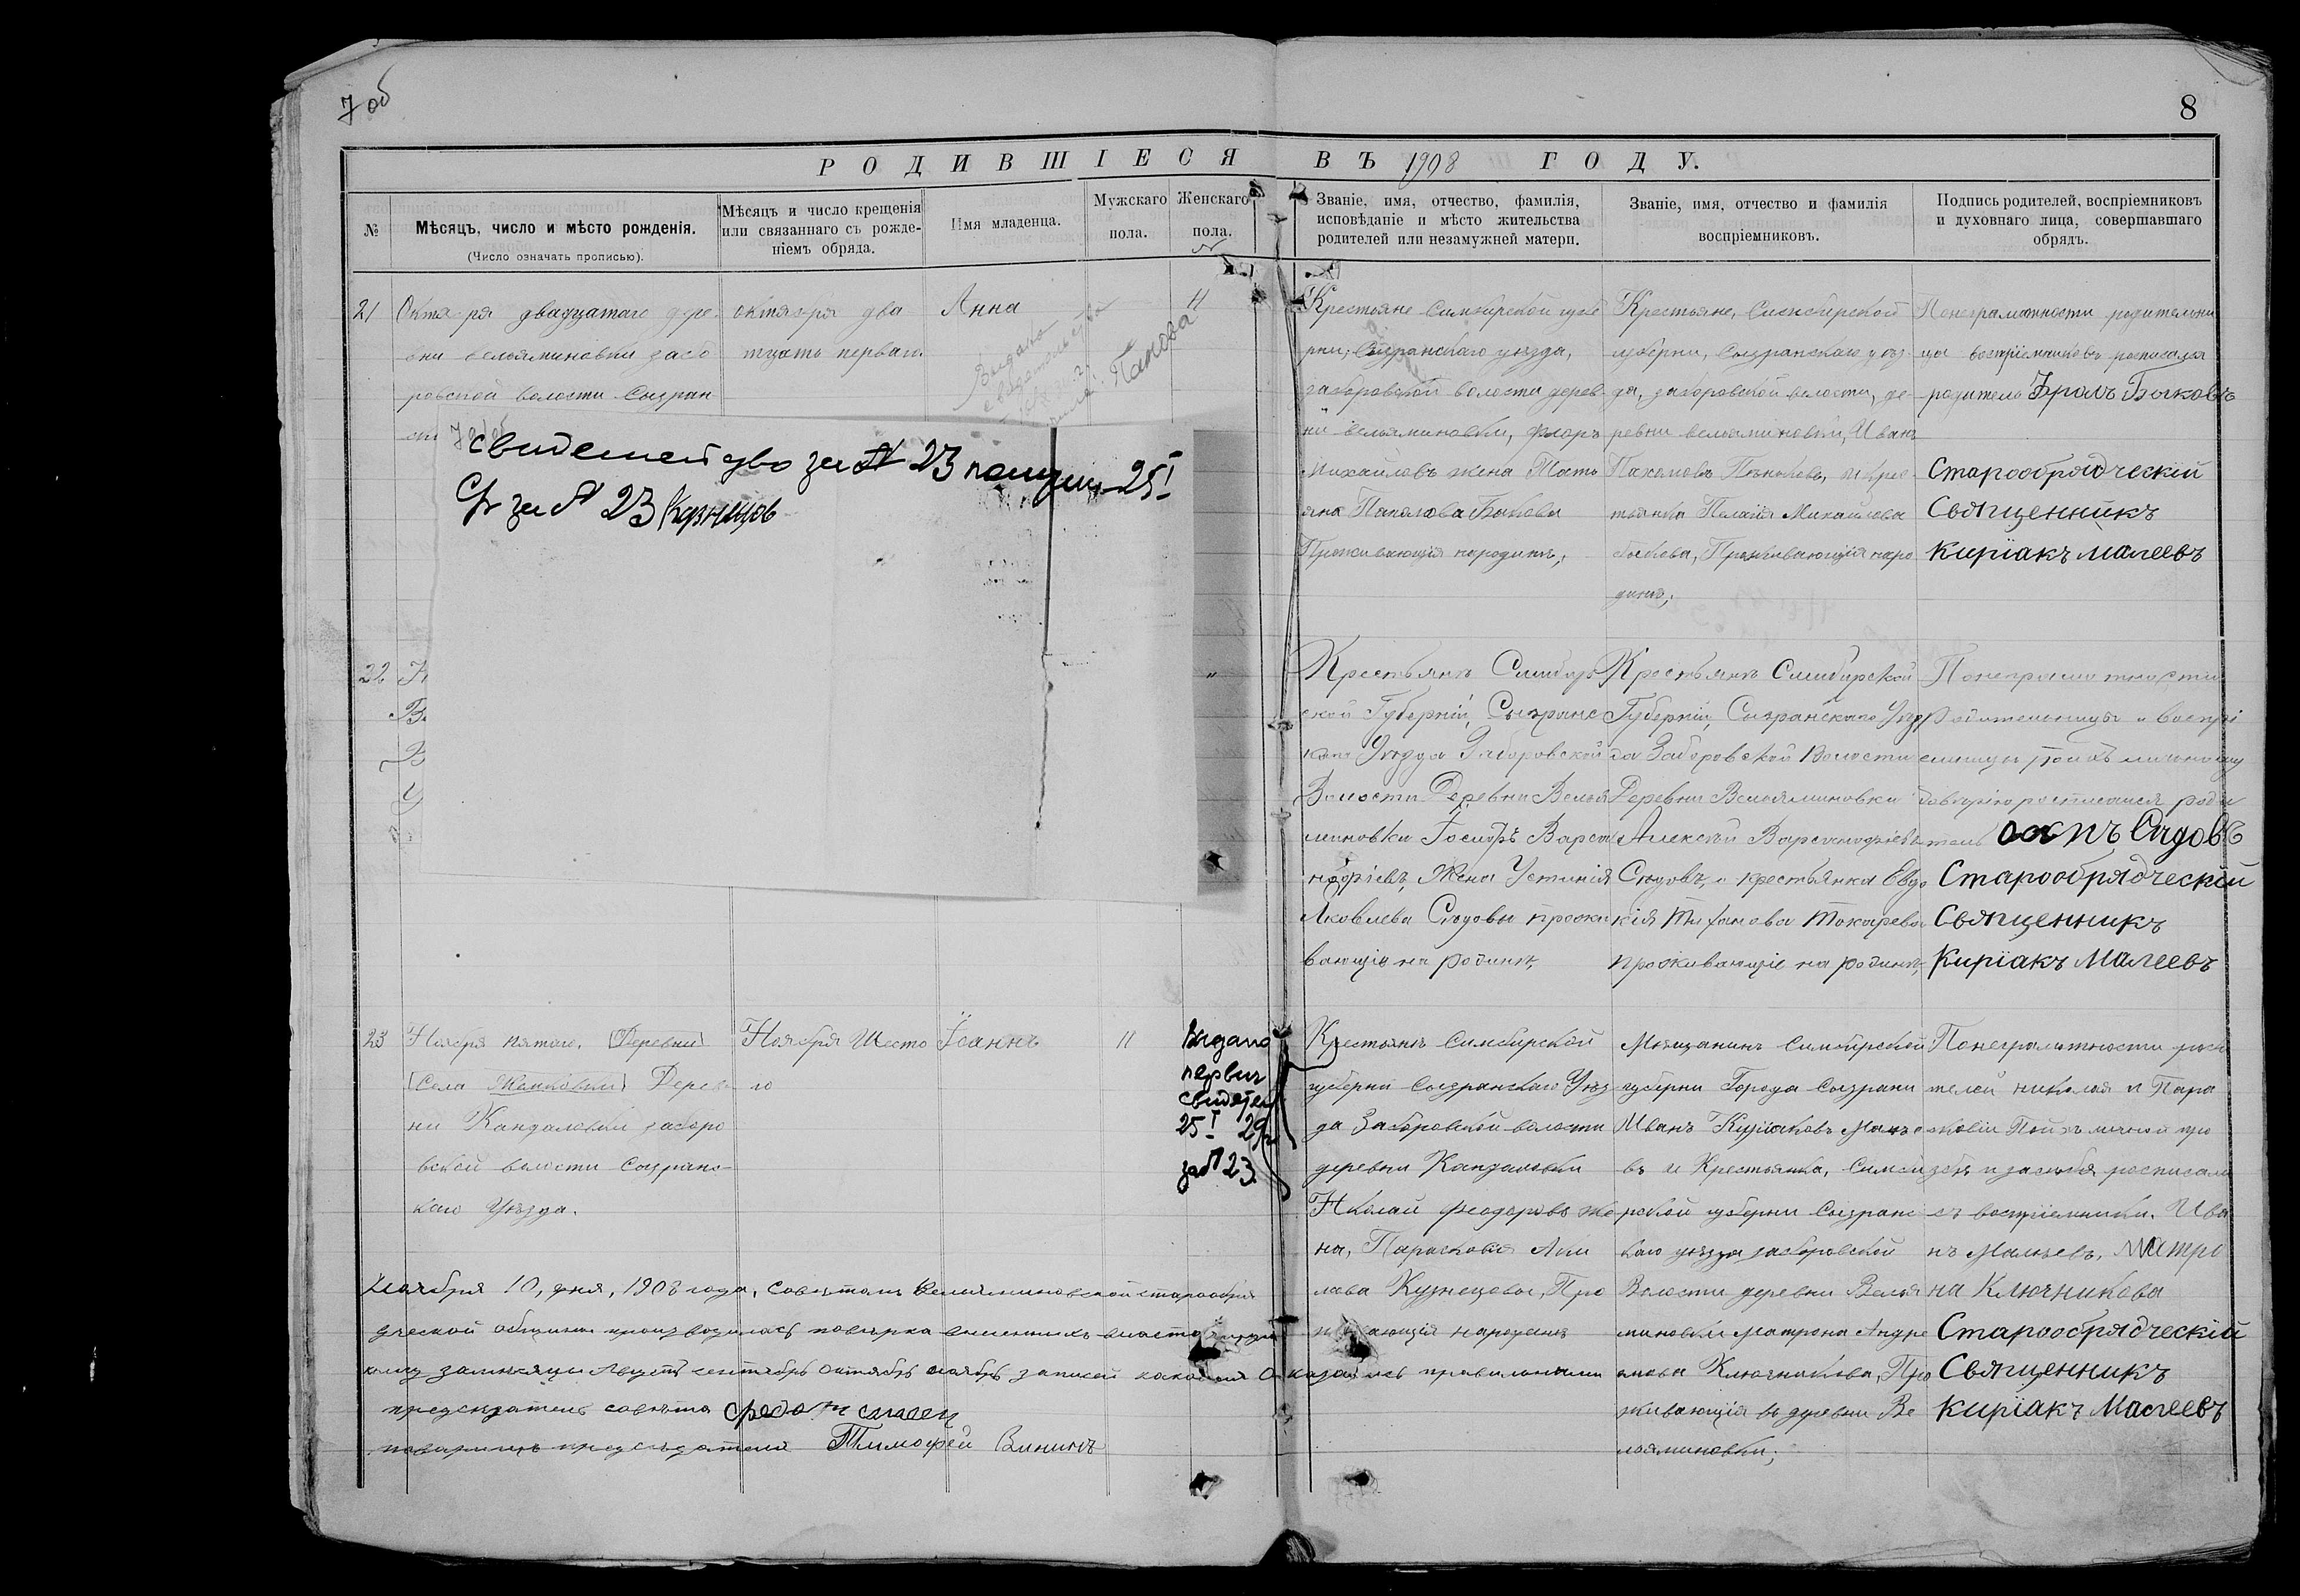 7 об
8
РОДИВШІЕСЯ ВЪ 1908 ГОДУ.
№
Мѣсяцъ, число и мѣсто рожденія.
(Число означать прописью).
Мѣсяцъ и число крещенія
или связаннаго съ рожде-
ніемъ обряда.
Имя младенца.
Мужскаго
пола.
Женскаго
пола.
Званіе, имя, отчество, фамилія,
исповѣданіе и мѣсто жительства
родителей или незамужней матери.
Званіе, имя, отчество и фамилія
воспріемниковъ.
Подпись родителей, воспріемниковъ
и духовнаго лица, совершавшаго
обрядъ.
21
Октября двадцатаго дере-
вни вельяминовки забо
ровской волости Сызран
октября два
тцать перваго
Анна
Выдано
Панова
Крестьяне Симбирской губе
рни, Сызранскаго уѣзда,
заборовской волости дерев
ни вельяминовки, Флоръ
Михайловъ жена Тать
яна Быкова
Проживающія народинѣ,
Крестьяне, Симбирской
губерни, Сызранскаго уѣз
да, заборовской волости, де
ревни вельяминовки, Иванъ
Пахомовъ и крес
тьянка Михайлова
быкова, Проживающія наро
динѣ,
Понеграмотности родительни
цы воспріемниковъ росписался
родитель Фролъ Быковъ
Старообрядческій
Священникъ
Киріакъ Малеевъ
свидетельство за № 23 получил 25 I
Св за № 23 Кузнецов
22
Крестьянъ Симбир
ской Губерніи, Сызранс
каго Уѣзда Заборовской
Волости Деревни Велья
миновки Іосифъ Варса
нофіевъ, Жена Устинія
Яковлева Сѣдовы прожи
вающіе на родинѣ,
Крестьянъ Симбирской
Губерніи, Сызранскаго Уѣз
да Заборовской Волости
Деревни Вельяминовки
Алексѣй Варсанофіевъ
Сѣдовъ, и крестьянка Евдо
кія Токарева
проживающіе на родинѣ,
Понеграмотности
Родительницы и воспрі
емницы поихъ личному
довѣрію росписался роди
тель Осипъ Сядовъ
Старообрядческій
Священникъ
Киріакъ Малеевъ
23
Ноября пятаго, [Деревни]
[Села] Дерев-
ни Кандаловки заборо
вской волости Сызранс-
каго Уѣзда.
Ноября Шесто
го
Іоаннъ
11
Выдано
первич
свидетел
25 I 29 г
за № 23
Крестьянъ Симбирской
губерни Сызранскаго Уѣз
да Заборовской волости
деревни Кандаловки
Николай Феодоровъ же
на, Парасковья
Кузнецовы, Про
живающія народинѣ
Мѣщанинъ Симбирской
губерни Города Сызрани
Иванъ Киріаковъ Малѣе
въ и Крестьянка, Симби
рской губерни Сызранс
каго уѣзда заборовской
Волости деревни Велья
миновки Матрона Андре
Ключникова, Про
живающія въ деревни Ве
льяминовки,
Понеграмотности роди
телей николая и Пара
сковіи Поихъ личной про
збѣ и засебя росписали
сь воспріемники. Ива
нъ Малѣевъ, Матро
на Ключникова
Старообрядческій
Священникъ
Киріакъ Малеевъ
ноября 10, дня, 1908 года, Совѣтомъ Вельяминовской старообря
дческой общины производилась повѣрка
замѣсяцы Августъ сентябрь Октябрь ноябрь записей каковыя Оказались правильными
председатель совѣта
товарищъ председателя Тимофей Вининъ